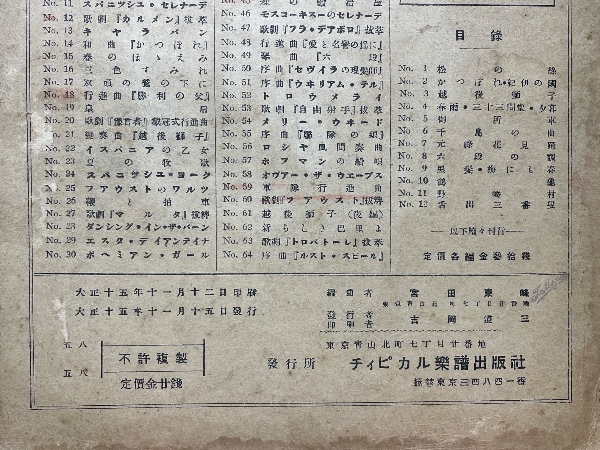 No. 11 スパニッシュ・セレナーデ
No. 12 歌劇『カルメン』抜萃
No. 13 キャラバン
No. 14 和曲『かつぽれ』
No. 15 春のほゝえみ
No. 16 三色すみれ
No. 17 双頭の鷲の下に
No. 18 行進曲『勝利の父』
No. 19 皇后
No. 20 歌劇『豫言者』戴冠式行進曲
No. 21 獨奏曲『越後獅子』
No. 22 イスパニアの乙女
No. 23 夏の牧歌
No. 24 スパニッシュ・ヨーク
No. 25 フアウストのワルツ
No. 26 鞭と拍車
No. 27 歌劇『マルタ』抜萃
No. 28 ダンシング・イン・ザ・バーン
No. 29 エスタ・デイアンテイナ
No. 30 ボヘミアン・ガール
No. 45 森の鍛冶屋
No. 46 モスコーキスーのセレナーデ
No. 47 歌劇『フラ・デアボロ』抜萃
No. 48 行進曲『愛と名譽の爲に』
No. 49 箏曲『六段』
No. 50 序曲『セヴィラの理髪師』
No. 51 序曲『ウキリアム・テル』
No. 52 トロウメライ
No. 53 歌劇『自由射手』抜萃
No. 54 メリー・ウキドー
No. 55 序曲『聯隊の娘』
No. 56 ロシヤ風間奏曲
No. 57 ホフマンの船唄
No. 58 オヴアー・ザ・ウエーブス
No. 59 軍隊行進曲
No. 60 歌劇『フアウスト』抜萃
No. 61 越後獅子(後編)
No. 62 新らしき巴里よ
No. 63 歌劇『トロバトーレ』抜萃
No. 64 序曲『ルスト・スピール』
目錄
No. 1 松の緑
No. 2 かつぽれ・紀伊の國
No. 3 越後獅子
No. 4 春雨・三十三間堂・夕暮
No. 5 御所車
No. 6 千鳥の曲
No. 7 元祿花見踊
No. 8 六段の調
No. 9 黒髪・梅にも春
No. 10 鶴龜
No. 11 野崎村
No. 12 舌出三番叟
―以下續々刊行―
定價各編金参拾錢
大正十五年十一月十二日印刷
大正十五年十一月十五日發行
編曲者 宮田東峰
東京市青山北町七丁目廿番地
發行者
印刷者 吉岡道三
東京青山北町七丁目廿番地
不許複製
定價金廿錢
發行所 チィピカル樂譜出版社
振替東京三四八四一番